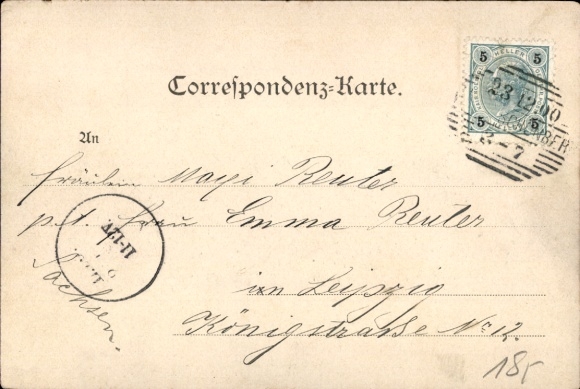 Correspondenz-Karte.
5 HELLER 5
5 5
23 12 00
3-7
An
Fräulein Reuter
p. t. Frau Emma Reuter
in Leipzig
Königstraße No 12.
Sachsen.
11-12V
18,